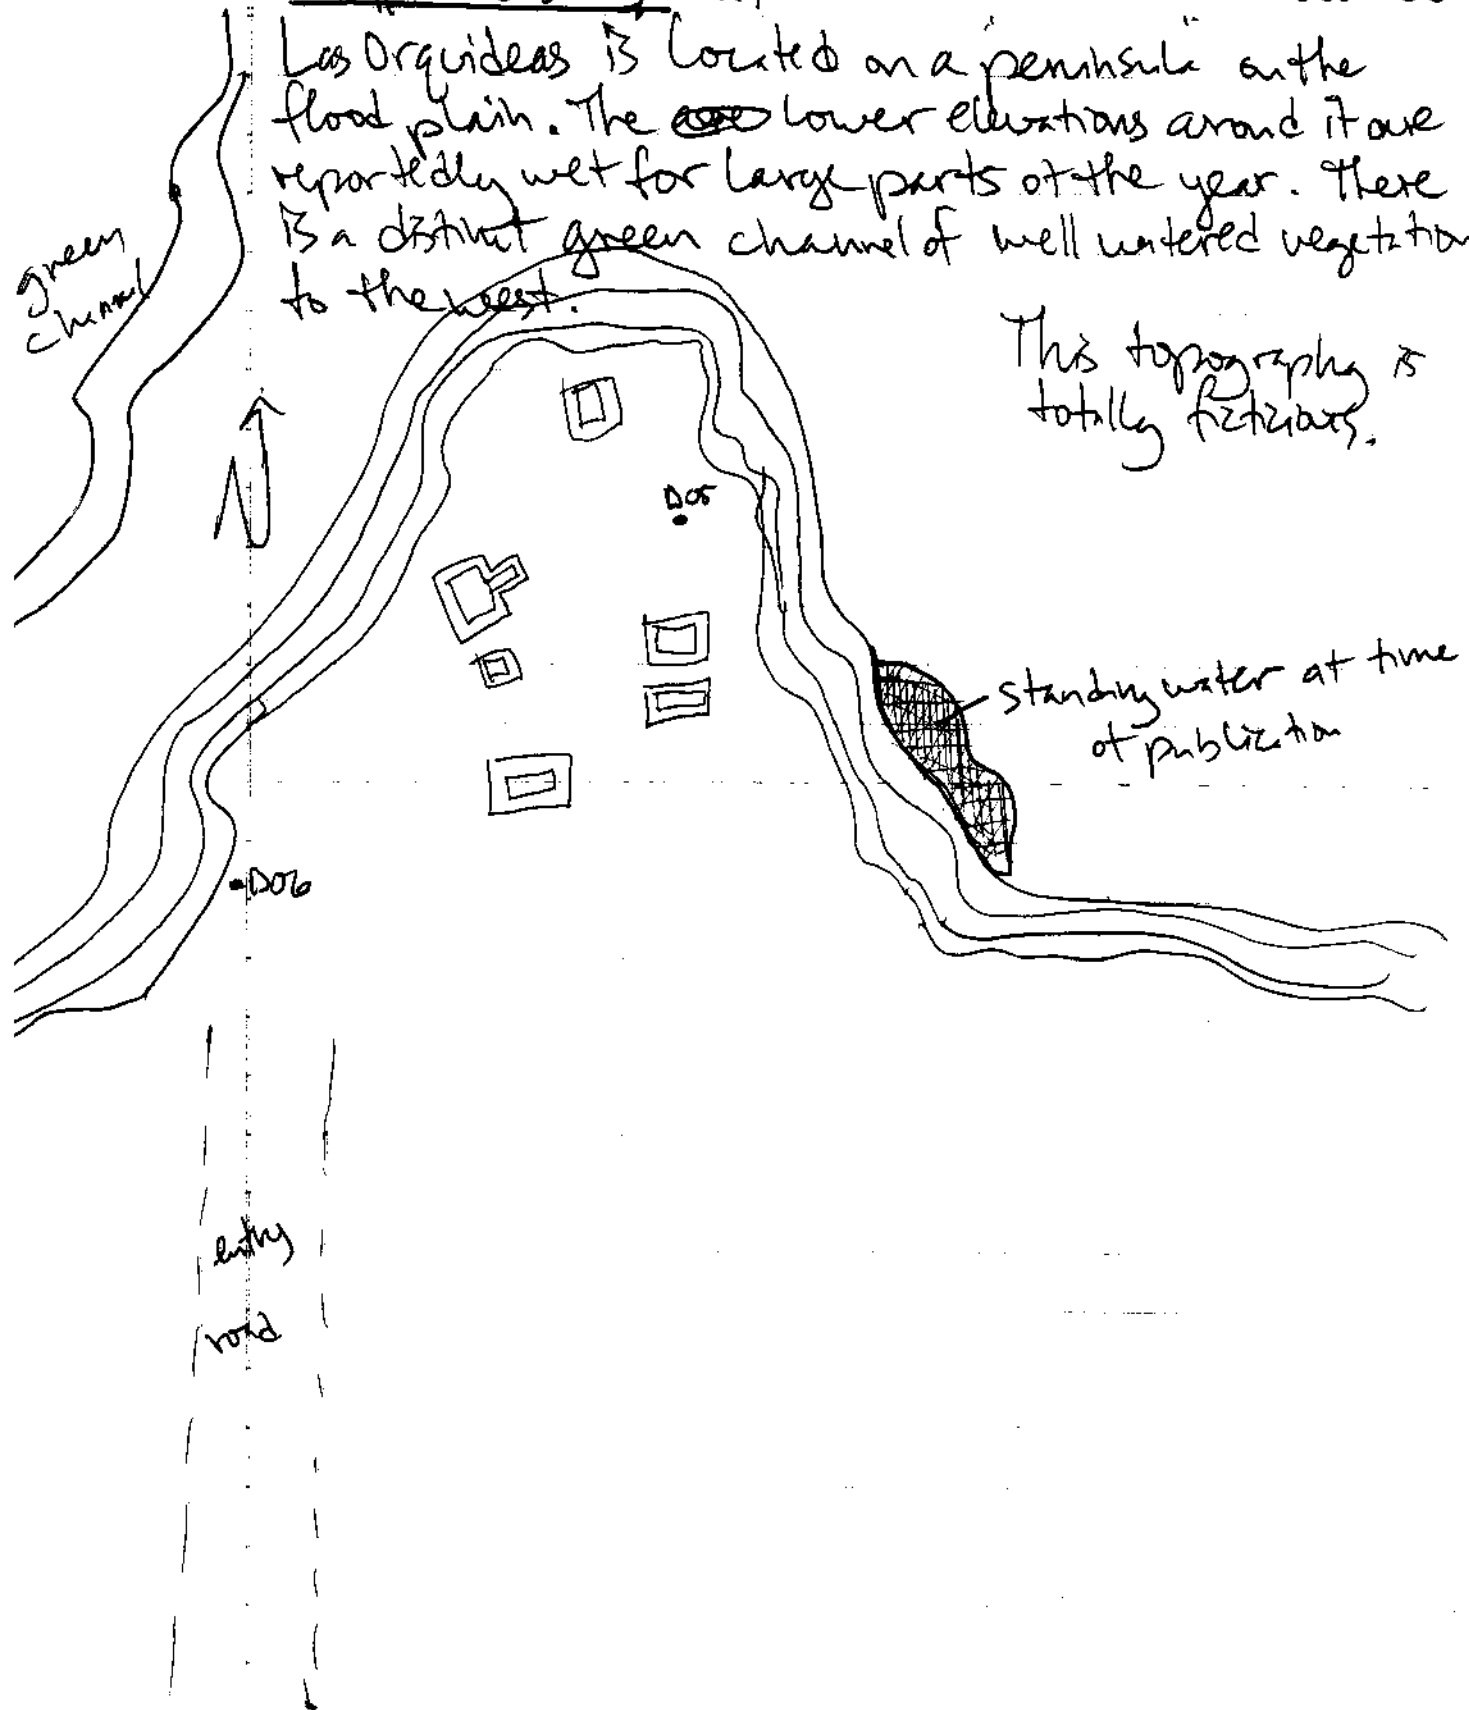 Las Orquideas is located on a "peninsula" on the
flood plain. The lower elevations around it are
reportedly wet for large parts of the year. There
is a distinct green channel of well watered vegetation
to the west.
green
channel
This topography is
totally ficticious.
N
D05
standing water at time
of publication
D06
entry
road